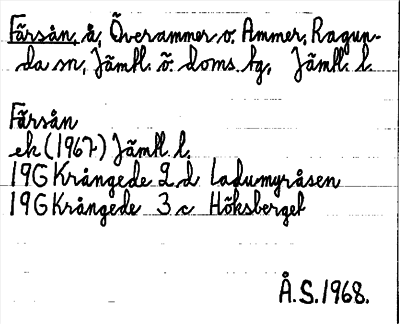 Färsån, å, Överammer o. Ammer, Ragun-
da sn, Jämtl. ö. doms. tg, Jämtl. l.
Färsån
ek (1967) Jämtl. l.
19G Krångede 2 d Ladumyråsen
19G Krångede 3 c Höksberget
Å.S. 1968.